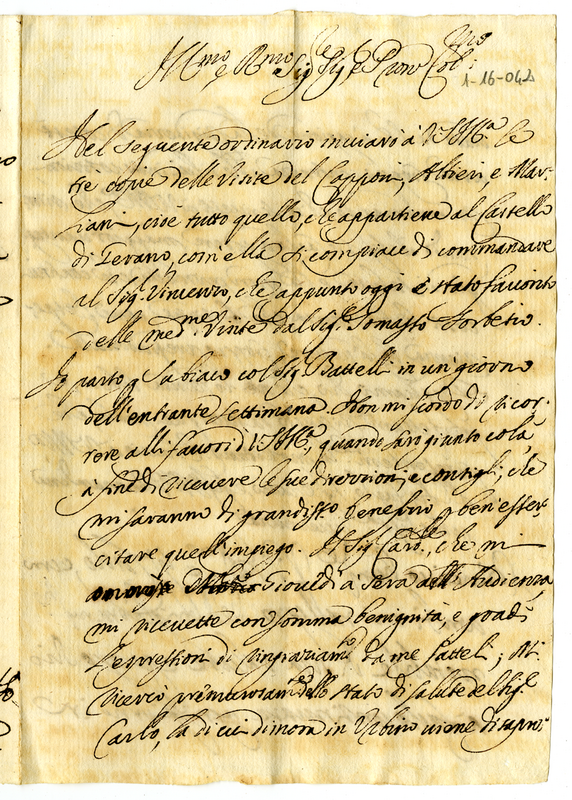 Ill.mo e R.mo Sig.r Sig.r e P.rone Col.mo
1-16-042
Nel seguente ordinario inviarò à V.S.Ill.ma le
trè copie delle Visite del Capponi, Altieri, e Mar-
liani, cioè tutto quello, che appartiene al Castello
di Terano, com'ella si compiace di commandare
al Sig.r Vincenzo, che appunto oggi è stato favorito
delle med.me Visite dal Sig.r Tomasso
Io parto p Subiaco col Sig.r Battelli in un giorno
dell'entrante settimana. Non mi scordo di ricor-
rere alli favori di V.S.Ill.ma, quando sarò giunto colà,
à fine di ricevere le sue direzzioni, e consigli, che
mi saranno di grandiss.o beneficio p ben'esser-
citare quell'impiego. Il Sig.r Card.le, che mi
Giovedì à sera all'Audienza,
mi ricevette con somma benignità, e gradì
l'espressioni di ringraziam.to da me fatteli; Mi
ricercò premurosam.te dello stato di salute del Sig.r
Carlo, la di cui dimora in Urbino viene disappro-